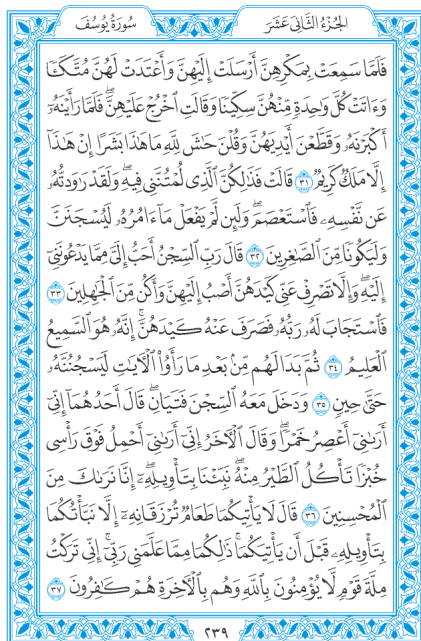 الجُزْءُ الثَّانِي عَشَرَ
سُورَةُ يُوسُفَ
فَلَمَّا سَمِعَتْ بِمَكْرِهِنَّ أَرْسَلَتْ إِلَيْهِنَّ وَأَعْتَدَتْ لَهُنَّ مُتَّكَـًٔا
وَءَاتَتْ كُلَّ وَٰحِدَةٍ مِّنْهُنَّ سِكِّينًا وَقَالَتِ ٱخْرُجْ عَلَيْهِنَّ ۖ فَلَمَّا رَأَيْنَهُۥٓ
أَكْبَرْنَهُۥ وَقَطَّعْنَ أَيْدِيَهُنَّ وَقُلْنَ حَٰشَ لِلَّهِ مَا هَٰذَا بَشَرًا إِنْ هَٰذَآ
إِلَّا مَلَكٌ كَرِيمٌ ٣١ قَالَتْ فَذَٰلِكُنَّ ٱلَّذِى لُمْتُنَّنِى فِيهِ ۖ وَلَقَدْ رَٰوَدتُّهُۥ
عَن نَّفْسِهِۦ فَٱسْتَعْصَمَ ۖ وَلَئِن لَّمْ يَفْعَلْ مَآ ءَامُرُهُۥ لَيُسْجَنَنَّ
وَلَيَكُونًا مِّنَ ٱلصَّٰغِرِينَ ٣٢ قَالَ رَبِّ ٱلسِّجْنُ أَحَبُّ إِلَىَّ مِمَّا يَدْعُونَنِىٓ
إِلَيْهِ ۖ وَإِلَّا تَصْرِفْ عَنِّى كَيْدَهُنَّ أَصْبُ إِلَيْهِنَّ وَأَكُن مِّنَ ٱلْجَٰهِلِينَ ٣٣
فَٱسْتَجَابَ لَهُۥ رَبُّهُۥ فَصَرَفَ عَنْهُ كَيْدَهُنَّ ۚ إِنَّهُۥ هُوَ ٱلسَّمِيعُ
ٱلْعَلِيمُ ٣٤ ثُمَّ بَدَا لَهُم مِّنۢ بَعْدِ مَا رَأَوُا۟ ٱلْـَٔايَٰتِ لَيَسْجُنُنَّهُۥ
حَتَّىٰ حِينٍ ٣٥ وَدَخَلَ مَعَهُ ٱلسِّجْنَ فَتَيَانِ ۖ قَالَ أَحَدُهُمَآ إِنِّىٓ
أَرَىٰنِىٓ أَعْصِرُ خَمْرًا ۖ وَقَالَ ٱلْـَٔاخَرُ إِنِّىٓ أَرَىٰنِىٓ أَحْمِلُ فَوْقَ رَأْسِى
خُبْزًا تَأْكُلُ ٱلطَّيْرُ مِنْهُ ۖ نَبِّئْنَا بِتَأْوِيلِهِۦٓ ۖ إِنَّا نَرَىٰكَ مِنَ
ٱلْمُحْسِنِينَ ٣٦ قَالَ لَا يَأْتِيكُمَا طَعَامٌ تُرْزَقَانِهِۦٓ إِلَّا نَبَّأْتُكُمَا
بِتَأْوِيلِهِۦ قَبْلَ أَن يَأْتِيَكُمَا ۚ ذَٰلِكُمَا مِمَّا عَلَّمَنِى رَبِّىٓ ۚ إِنِّى تَرَكْتُ
مِلَّةَ قَوْمٍ لَّا يُؤْمِنُونَ بِٱللَّهِ وَهُم بِٱلْـَٔاخِرَةِ هُمْ كَٰفِرُونَ ٣٧
٢٣٩